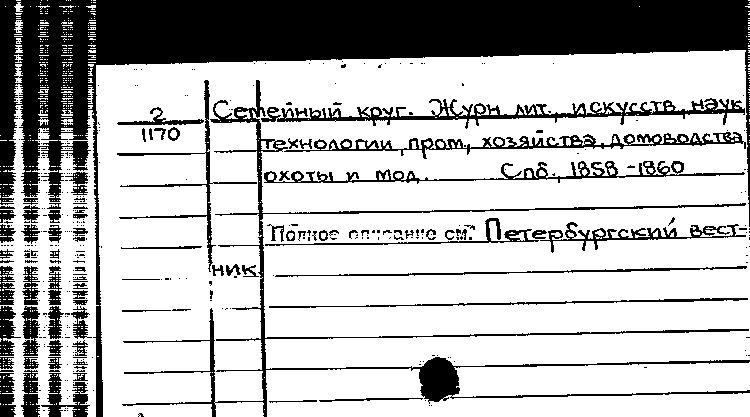 2
1170
Семейный круг. Журн лит., искусств, наук
технологии, пром., хозяйства, домоводства,
охоты и мод. Спб., 1858-1860
Полное описание см: Петербургский вест-
ник